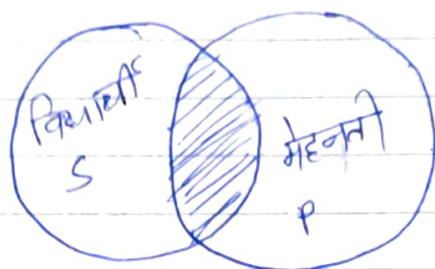 विद्यार्थी
S
मेहनती
P